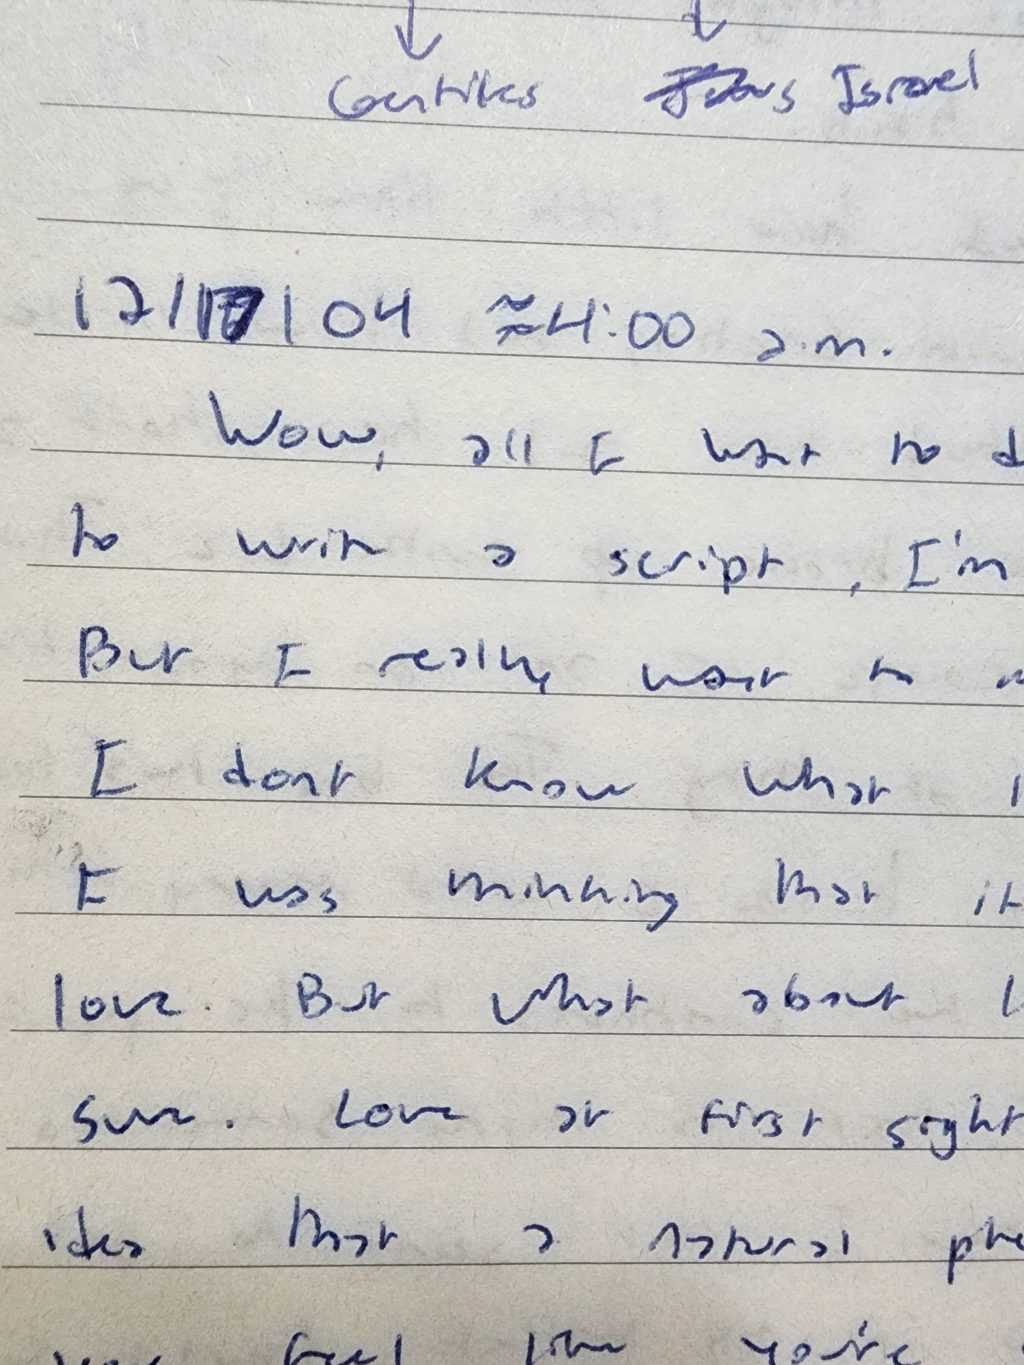 Gentiles Israel
12/17/04 ≈4:00 a.m.
Wow, all I want to d
to write a script, I'm
But I really want to
I dont know what i
I was thinking that it
love. But what about l
sure. Love at first sight
idea that a natural phe
feel like you're